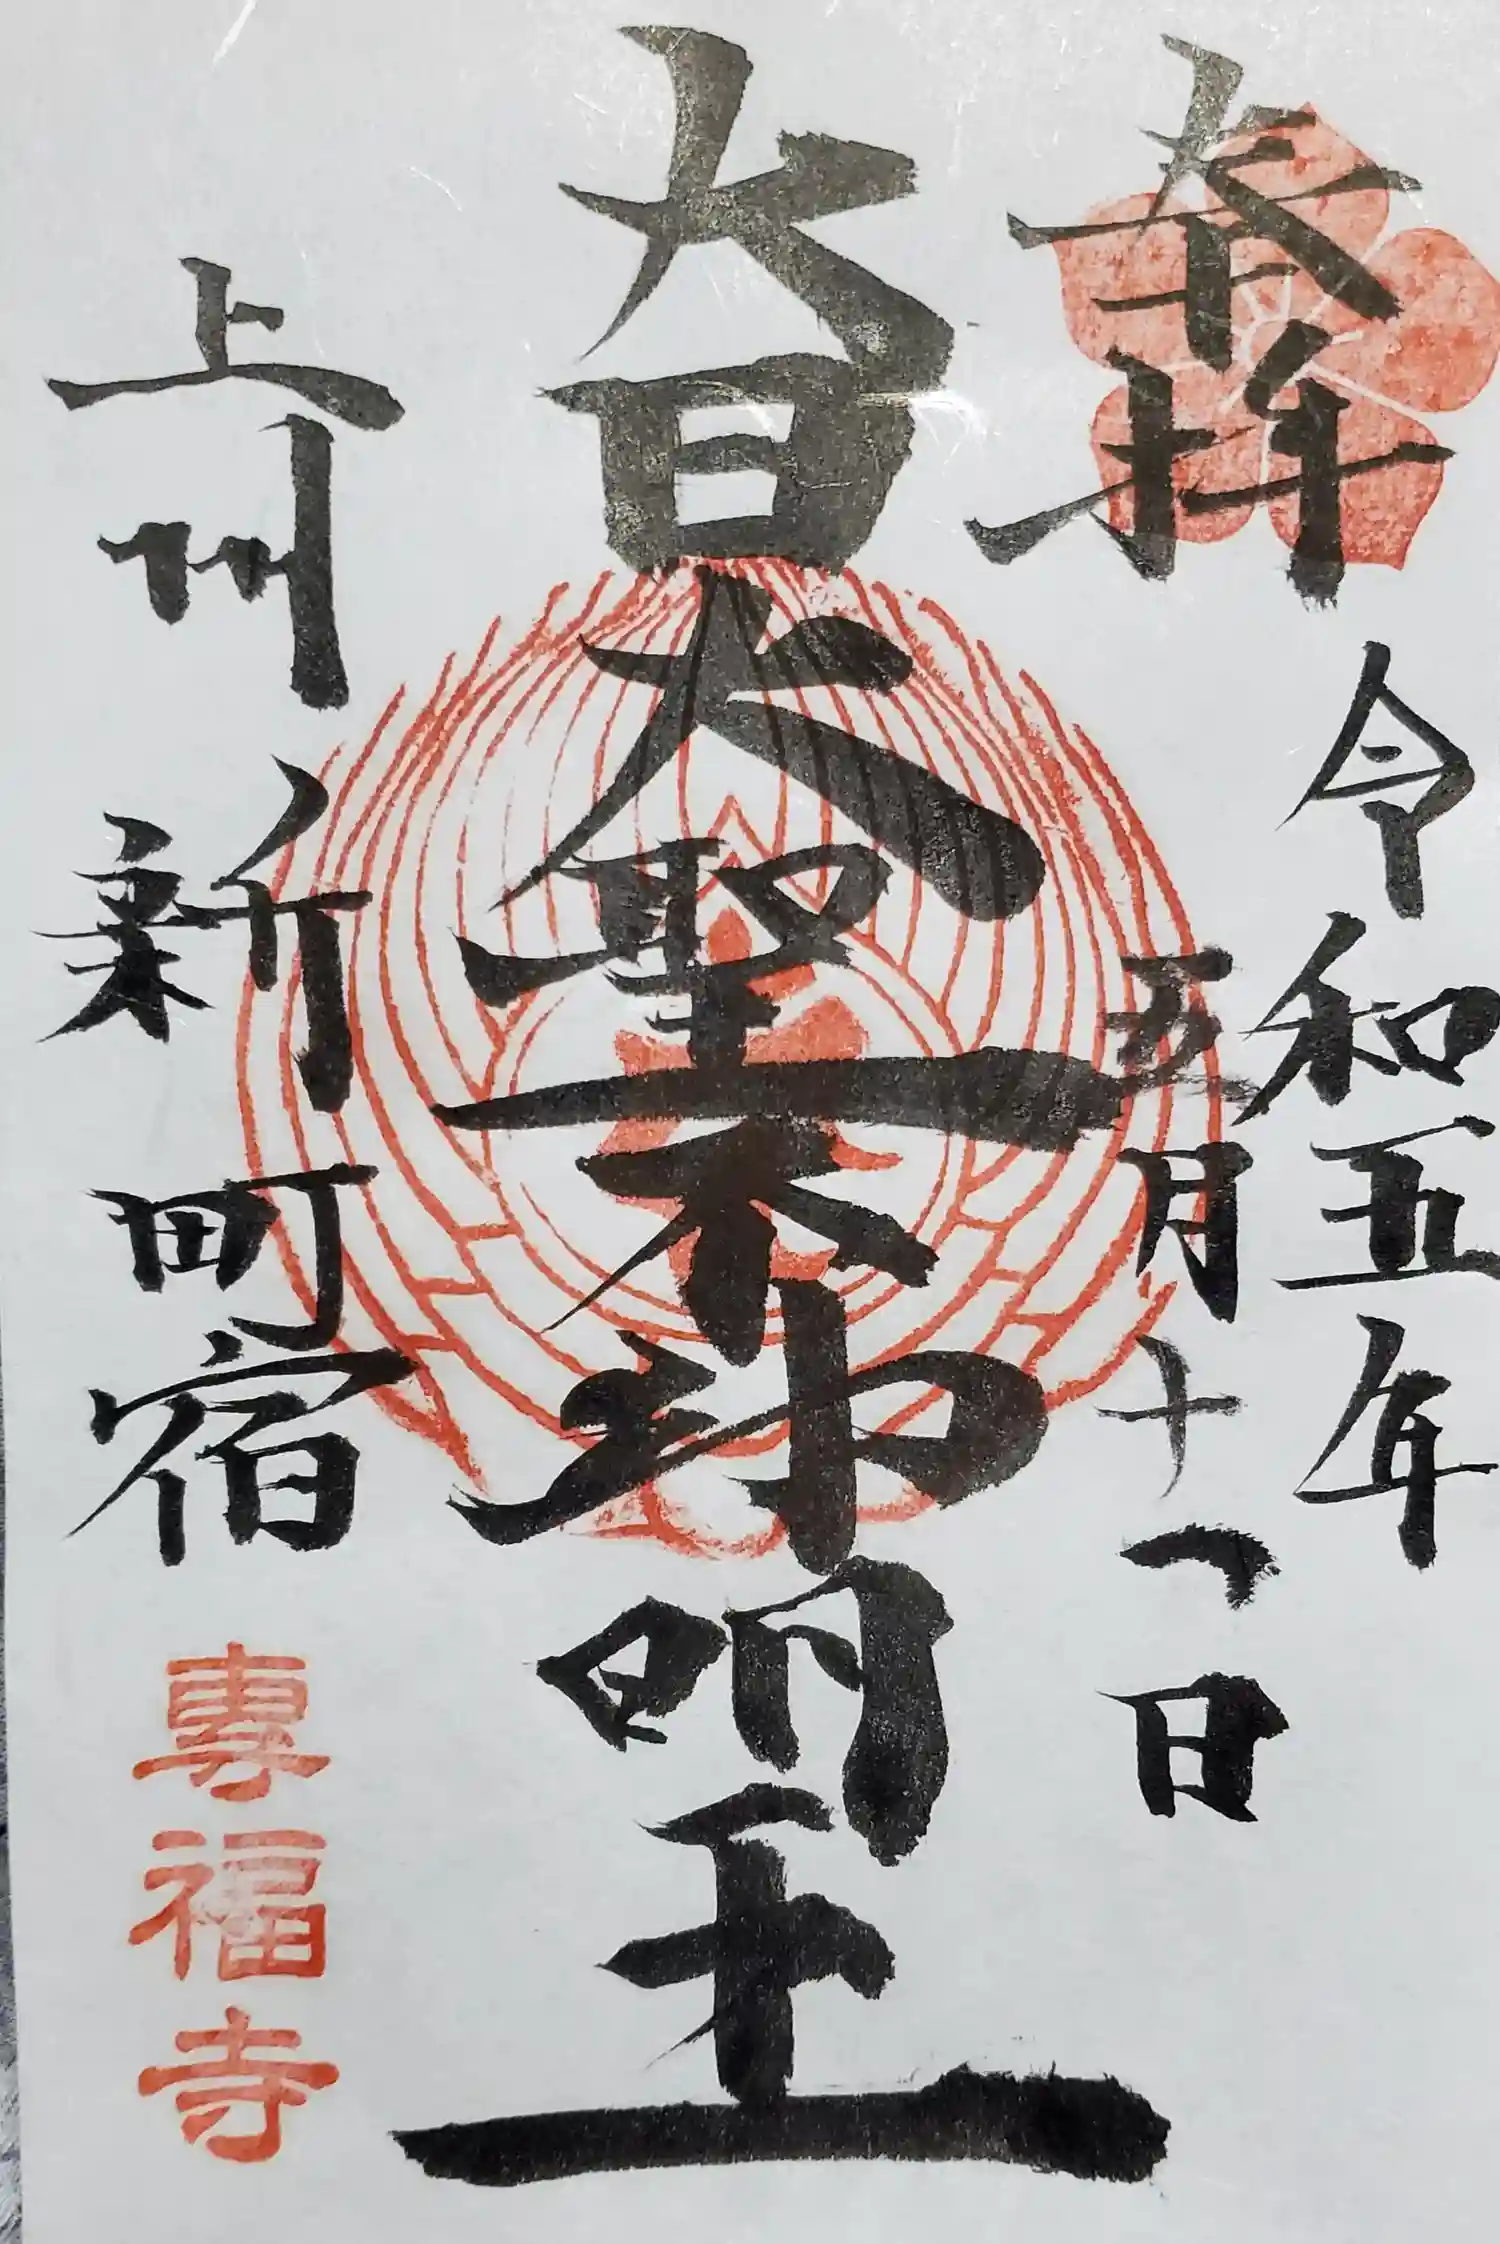 奉拝
令和五年
五月十一日
大日大聖不動明王
上州新町宿
專福寺